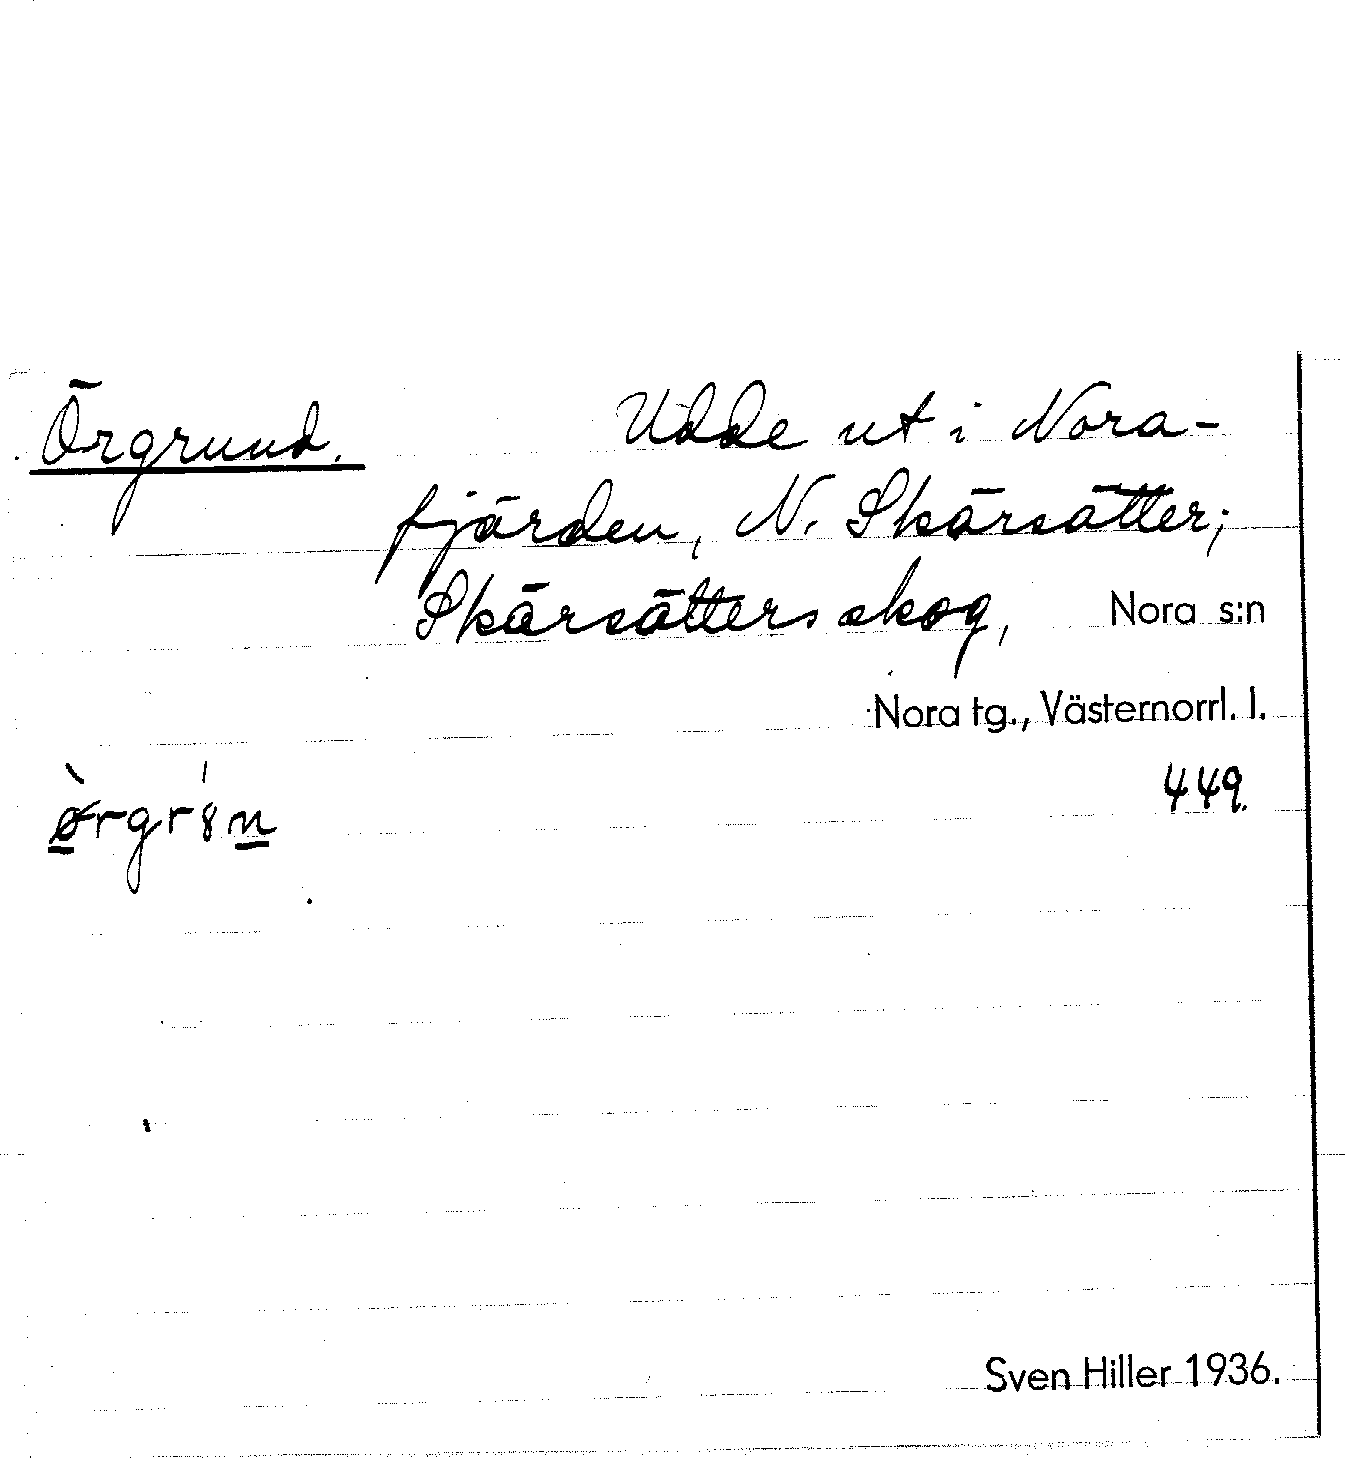 Örgrund. Udde ut i Nora-
fjärden, N. Skärsätter;
Skärsätters skog, Nora s:n
Nora tg., Västernorrl. l.
449.
ø̀rgrȣ́n
Sven Hiller 1936.